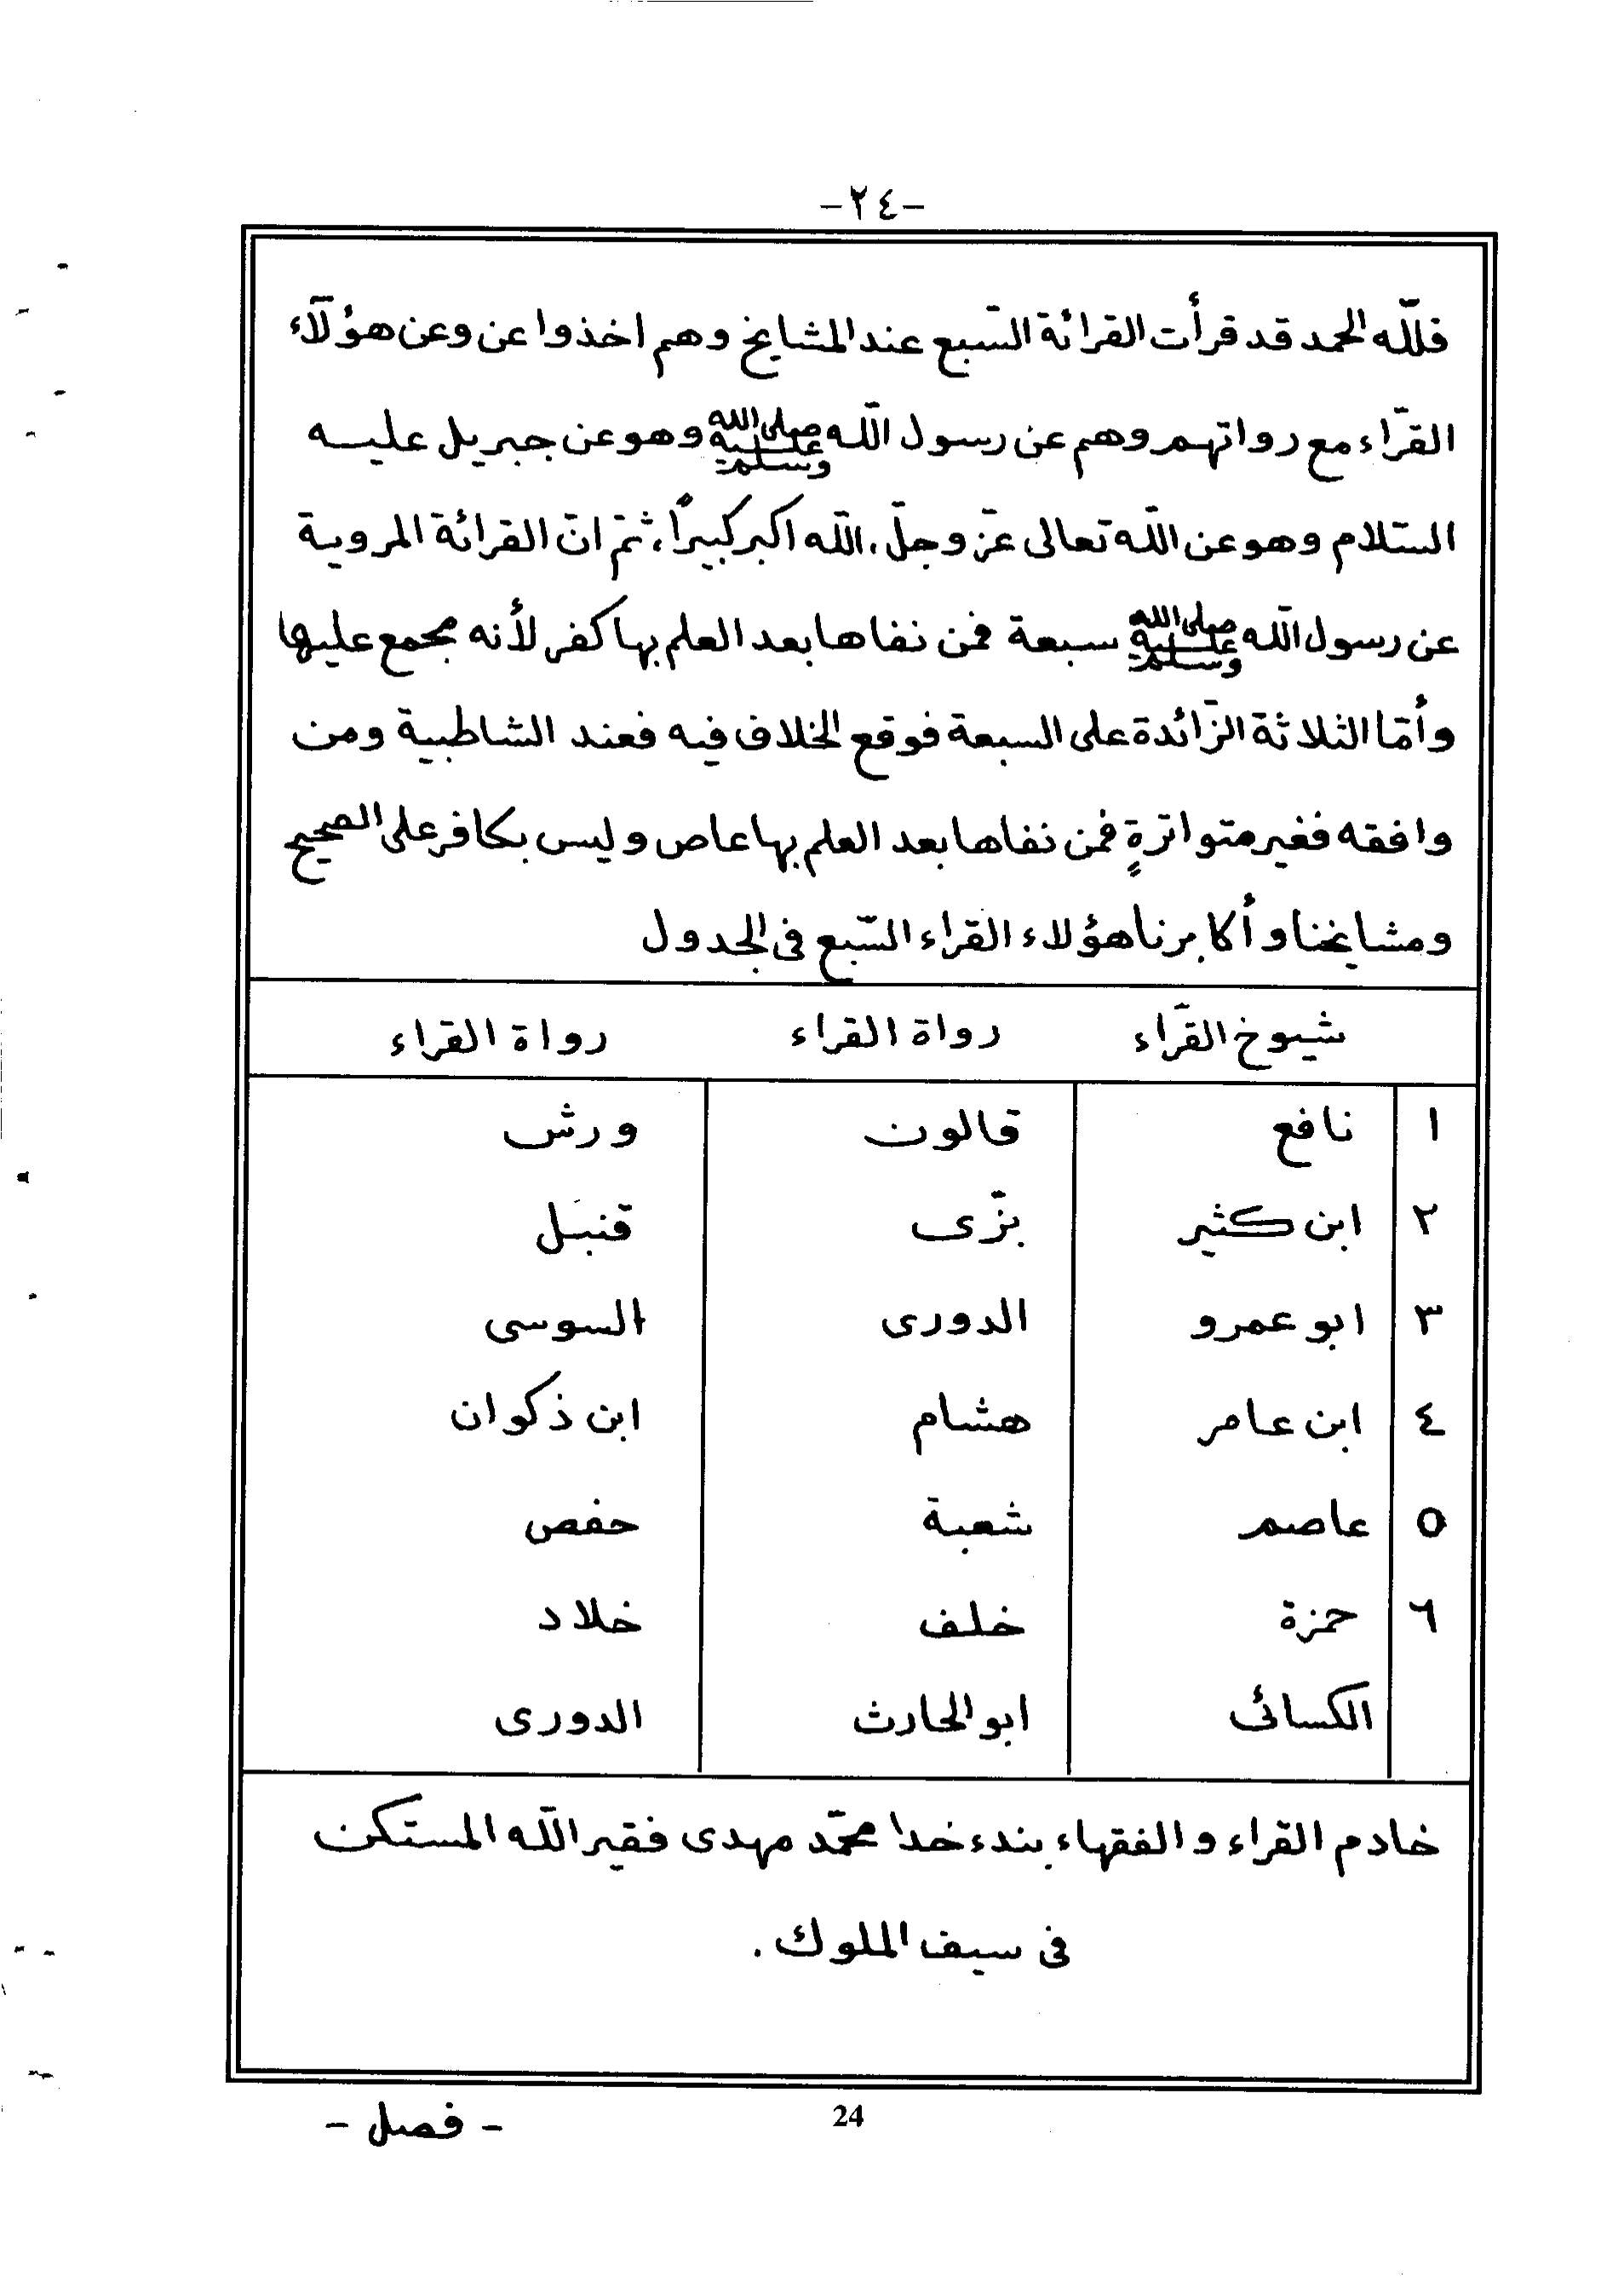 -٢٤-
فللّه الحمد قد قرأت القرائة السّبع عند المشايخ وهم اخذوا عن وعن هؤلآء
القرّاء مع رواتهم وهم عن رسول اللّه صلى الله عليه وسلم وهو عن جبريل عليه
السّلام وهو عن اللّه تعالى عزّ وجلّ، اللّه اكبر كبيراً، ثمّ انّ القرائة المروية
عن رسول اللّه صلى الله عليه وسلم سبعة فمن نفاها بعد العلم بها كفر لأنه مجمع عليها
وأمّا الثلاثة الزّائدة على السبعة فوقع الخلاف فيه فعند الشاطبية ومن
وافقه فغير متواترةٍ فمن نفاها بعد العلم بها عاص وليس بكافر على الصحيح
ومشايخنا وأكابرنا هؤلاء القراء السّبع فى الجدول
شيوخ القرّاء رواة القراء رواة القراء
١ نافع قالون ورش
٢ ابن كثير بزّى قنبل
٣ ابو عمرو الدورى السوسى
٤ ابن عامر هشام ابن ذكوان
٥ عاصم شعبة حفص
٦ حمزة خلف خلاد
الكسائى ابو الحارث الدورى
خادم القراء والفقهاء بندء خدا محمّد مهدى فقير اللّه المستكن
فى سيف الملوك.
24
- فصل -